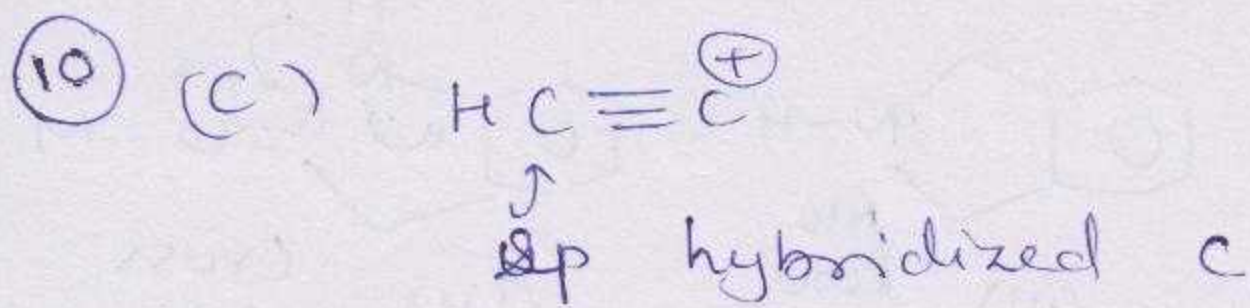 10 (C) HC≡C⊕
↑
sp hybridized C